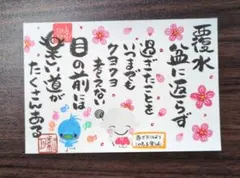 覆水
盆に返らず
過ぎたことを
いつまでも
クヨクヨ
考えない
目の前には
道が
たくさんある